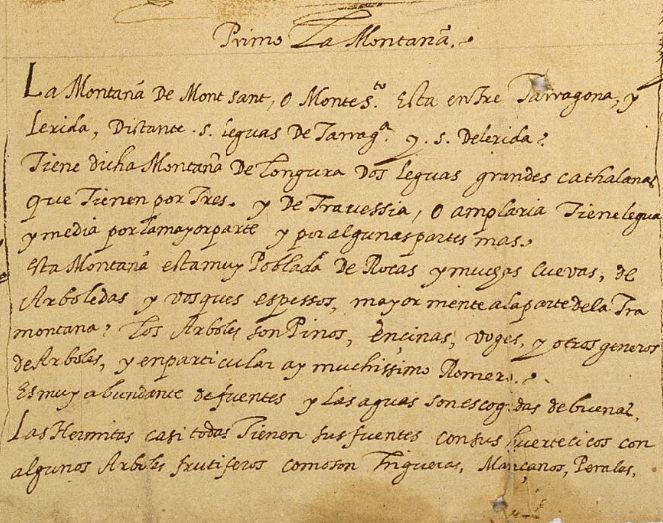 Primo La Montaña.
La Montaña de Montsant, o Monte s.to Esta entre Tarragona, y
Lerida, Distante .5. leguas de Tarrag.a y .5. de lerida.
Tiene dicha Montaña de longura dos leguas grandes cathalanas
que Tienen por Tres. y de Travessia, o amplaria Tiene legua
y media por la mayor parte y por algunas partes mas.
Esta Montaña esta muy Poblada de Rocas y muchas cuevas, de
Arboledas y vosques espessos, mayormente a la parte de la Tra
montana. Los Arboles son Pinos, encinas, voges, y otros generos
de Arboles, y en particular ay muchissimo Romer.
Es muy abundante de fuentes y las aguas son escogidas de buenas.
Las Hermitas casi todas Tienen sus fuentes con sus huertecicos con
algunos Arboles frutiferos como son higueras, Mançanos, Perales,